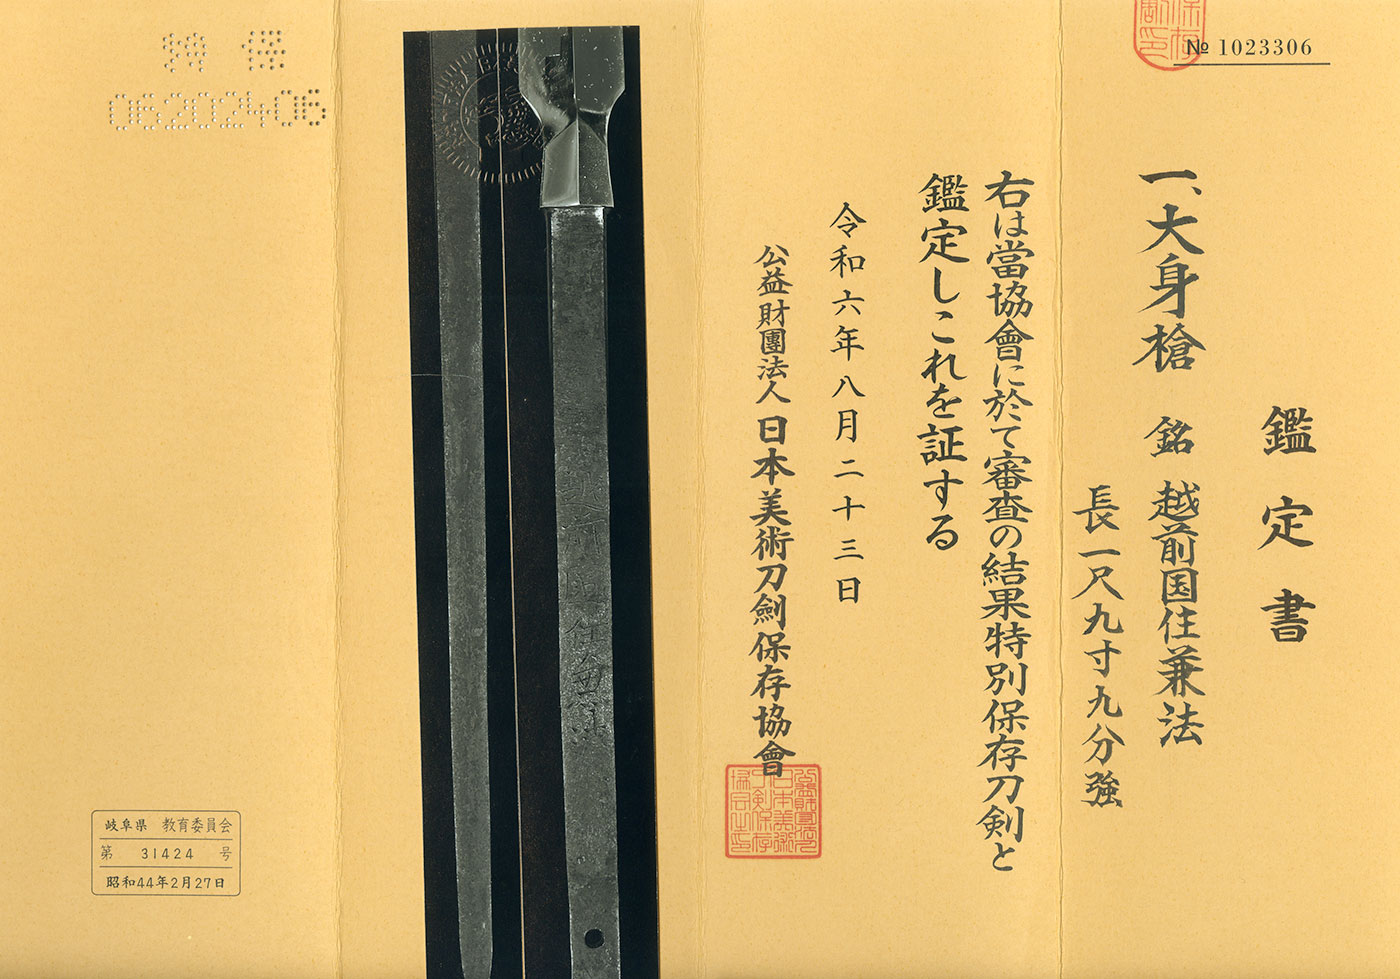 № 1023306
鑑定書
一、大身槍 銘 越前国住兼法
長一尺九寸九分強
右は當協會に於て審査の結果特別保存刀剣と
鑑定しこれを証する
令和六年八月二十三日
公益財團法人日本美術刀劍保存協會
特保
06202406
岐阜県 教育委員会
第 31424 号
昭和44年2月27日